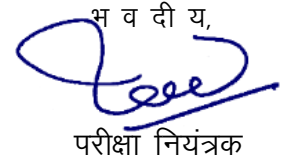 भ व दी य,
परीक्षा नियंत्रक